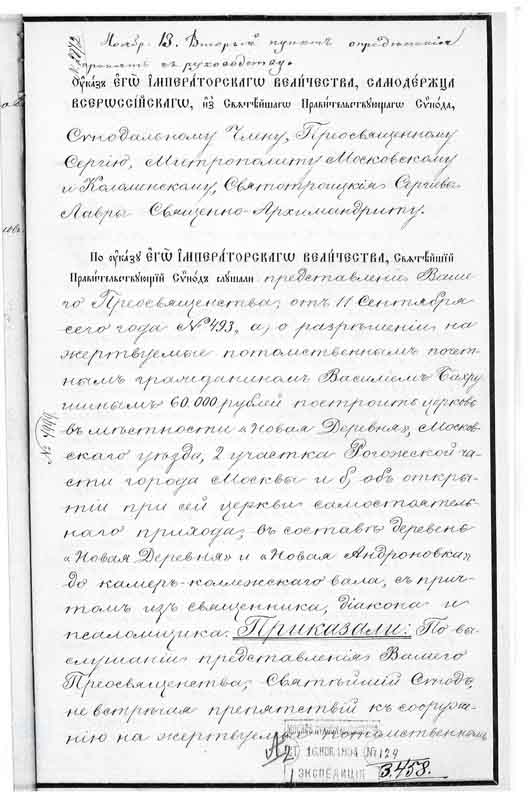 Ноябр. 13. Вторый пунктъ опредѣленія
принять къ руководству.
Оуказъ ЕГѠ ІМПЕРАТОРСКАГѠ ВЕЛИЧЕСТВА, САМОДЕРЖЦА
ВСЕРОССІЙСКАГѠ, изъ Свѧтѣйшагѡ Правительствующагѡ Сѵнода,
Сѵнодальному Члену, Преосвященному
Сергію, Митрополиту Московскому
и Коломенскому, Святотроицкія Сергіевы
Лавры Священно-Архимандриту.
По оуказу ЕГѠ ІМПЕРАТОРСКАГѠ ВЕЛИЧЕСТВА, Свѧтѣйшій
Правительствующій Сѵнодъ слушали представленіе Ваше-
го Преосвященства, отъ 11 Сентября
сего года № 493, а) о разрѣшеніи, на
жертвуемые потомственнымъ почет-
нымъ гражданиномъ Василіемъ Бахру-
шинымъ 60.000 рублей построить церковь
въ мѣстности «Новая Деревня», Москов-
скаго уѣзда, 2 участка Рогожской ча-
сти города Москвы и б, объ откры-
тіи при сей церкви самостоятель-
наго прихода, въ составѣ деревень
«Новая Деревня» и «Новая Андроновка»
до камеръ-колежскаго вала, съ прич-
томъ изъ священника, діакона и
псаломщика. Приказали: По вы-
слушаніи представленія Вашего
Преосвященства, Святѣйшій Сѵнодъ,
не встрѣчая препятствій къ сооруже-
нію на жертвуемые потомственнымъ
№ 4449
16 НОЯ 1894 № 124
ЭКСПЕДИЦІЯ
3.458.